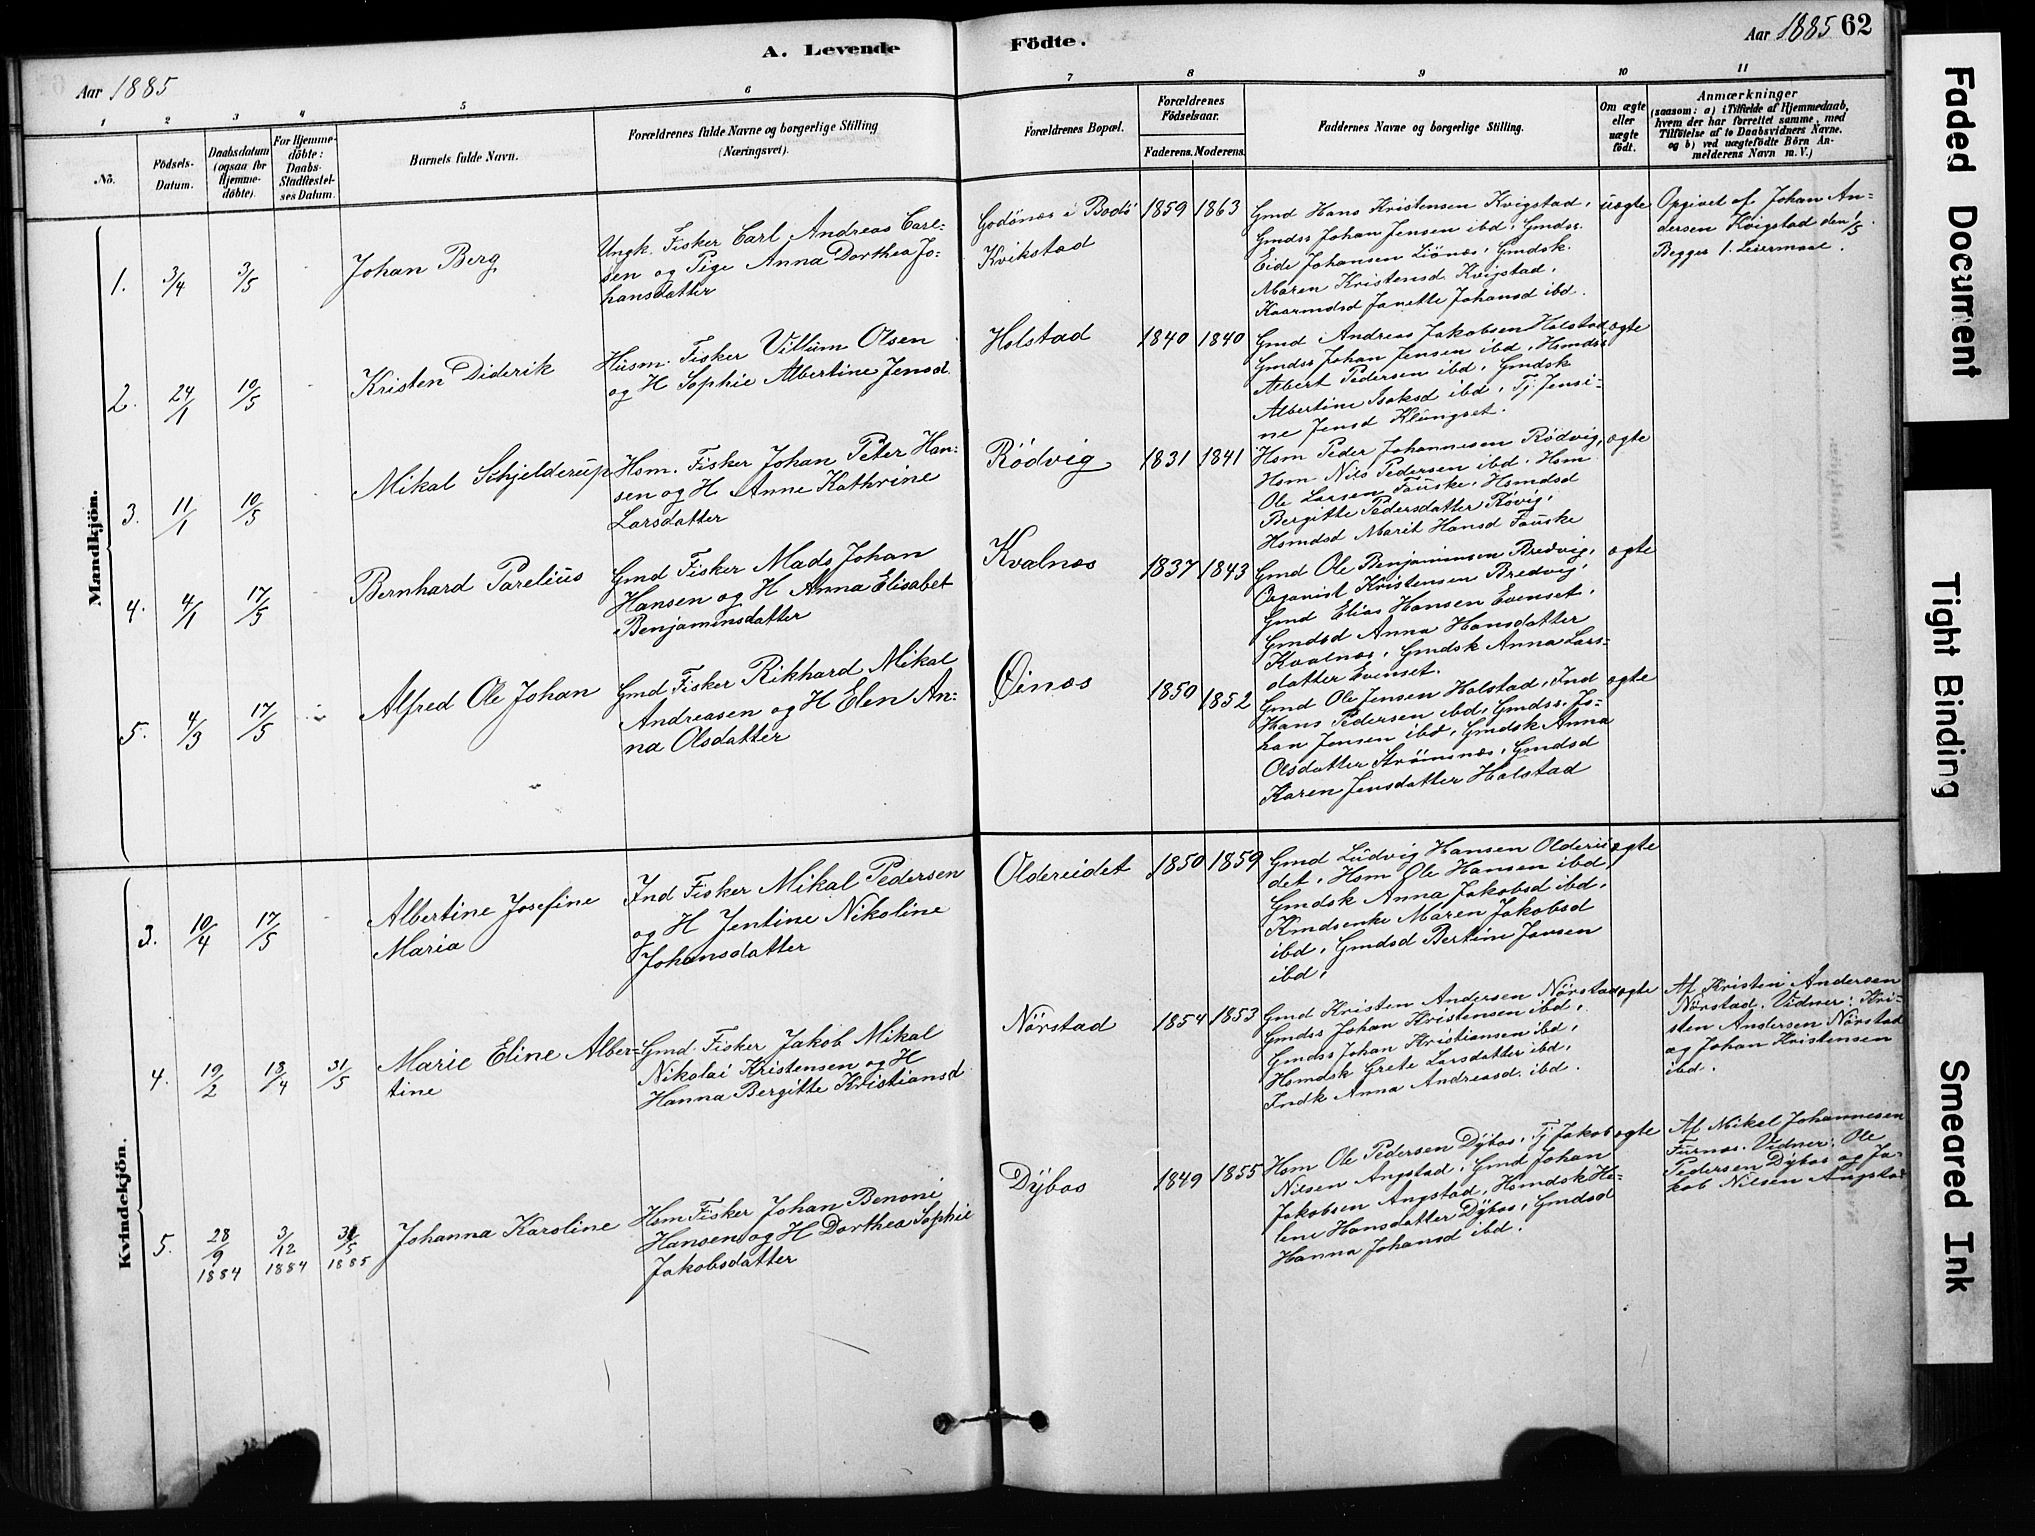 A. Levende Födte.
Aar 1885
Aar 1885 62
1 2 3 4 5 6 7 8 9 10 11
No.
Födsels-Datum.
Daabsdatum (ogsaa for Hjemme-döbte).
For Hjemme-döbte: Daabs-Stadfæstel-ses Datum.
Barnets fulde Navn.
Forældrenes fulde Navne og borgerlige Stilling (Næringsvei).
Forældrenes Bopæl.
Forældrenes Födselsaar.
Faderens. Moderens.
Faddernes Navne og borgerlige Stilling.
Om ægte eller uægte födt.
Anmærkninger
(saasom: a) i Tilfælde af Hjemmedaab,
hvem der har forrettet samme, med
Tilföielse af to Daabsvidners Navne,
og b) ved uægtefödte Börn An-
melderens Navn m. V.)
Mandkjön.
1. 3/4 3/5
Johan Berg
Ungk. Fisker Carl Andreas Carl-
sen og Pige Anna Dorthea Jo-
hansdatter
Godönes i Bodö
Kvikstad
1859 1863
Gmd Hans Kristensen Kvigstad,
Gmdss Johan Jensen ibd, Gmdss.
Eide Johansen Liönes, Gmdsk.
Maren Kristensd. Kvigstad,
Kaarmdsd Janette Johansd ibd.
uægte
Opgivet af Johan An-
dersen Kvigstad den 1/5
Begges 1. Leiermaal.
2. 24/1 10/5
Kristen Diderik
Husm. Fisker Villum Olsen
og H Sophie Albertine Jensd.
Holstad
1840 1840
Gmd Andreas Jakobsen Holstad,
Gmdss Johan Jensen ibd, Hsmdss
Albert Pedersen ibd, Gmdsk
Albertine Isaksd ibd, Tj. Jensi-
ne Jensd Klungset.
ægte
3. 11/1 10/5
Mikal Schjelderup
Hsm. Fisker Johan Peter Han-
sen og H Anne Kathrine
Larsdatter
Rödvig
1831 1841
Hsm Peder Johannesen Rödvig,
Hsm. Nils Pedersen ibd. Hsm
Ole Larsen Fauske, Hsmdsd
Bergitte Pedersdatter Rövig,
Hsmdsd Marit Hansd Fauske
ægte
4. 4/1 17/5
Bernhard Parelius
Gmd Fisker Mads Johan
Hansen og H Anna Elisabet
Benjaminsdatter
Kvalnes
1837 1843
Gmd Ole Benjaminsen Bredvig,
Organist Kristensen Bredvig,
Gmd Elias Hansen Evenset,
Gmdsd Anna Hansdatter
Kvalnes, Gmdsk Anna Lars-
datter Evenset.
ægte
5. 4/3 17/5
Alfred Ole Johan
Gmd Fisker Rikhard Mikal
Andreasen og H Elen An-
na Olsdatter
Øines
1850 1852
Gmd Ole Jensen Holstad, Ind
Hans Pedersen ibd, Gmdss. Jo-
han Jensen ibd, Gmdsk Anna
Olsdatter Strömsnes, Gmdsd
Karen Jensdatter Holstad
ægte
Kvindekjön.
3. 10/4 17/5
Albertine Josefine
Maria
Ind Fisker Mikal Pedersen
og H Jentine Nikoline
Johansdatter
Oldereidet
1850 1859
Gmd Ludvig Hansen Olderei-
det, Hsm Ole Hansen ibd,
Gmdsk Anna Jakobsd ibd,
Kmdsenke Maren Jakobsd
ibd, Gmdsd Bertine Jansen
ibd,
ægte
4. 19/2 13/4 31/5
Marie Eline Alber-
tine
Gmd. Fisker Jakob Mikal
Nikolai Kristensen og H
Hanna Bergitte Kristiansd
Nörstad
1854 1853
Gmd Kristen Andersen Nörstad
Gmdss Johan Kristensen ibd,
Gmdss Johan Kristiansen ibd,
Hsmdsk Grete Larsdatter ibd,
Indk Anna Andreasd. ibd.
ægte
Af Kristen Andersen
Nörstad. Vidner: Kri-
sten Andersen Nörstad
og Johan Kristensen
ibd.
5. 28/9 1884 3/12 1884 31/5 1885
Johanna Karoline
Hsm Fisker Johan Benoni
Hansen og H Dorthea Sophie
Jakobsdatter
Dybos
1849 1855
Hsm Ole Pedersen Dybos, Tj Jakob
Nilsen Angstad, Gmd Johan
Jakobsen Angstad, Hsmdsk He-
lene Hansdatter Dybos, Gmdsd
Hanna Johansd ibd.
ægte
Af Mikal Johannesen
Furnes. Vidner: Ole
Pedersen Dybos og Ja-
kob Nilsen Angstad
Faded Document
Tight Binding
Smeared Ink